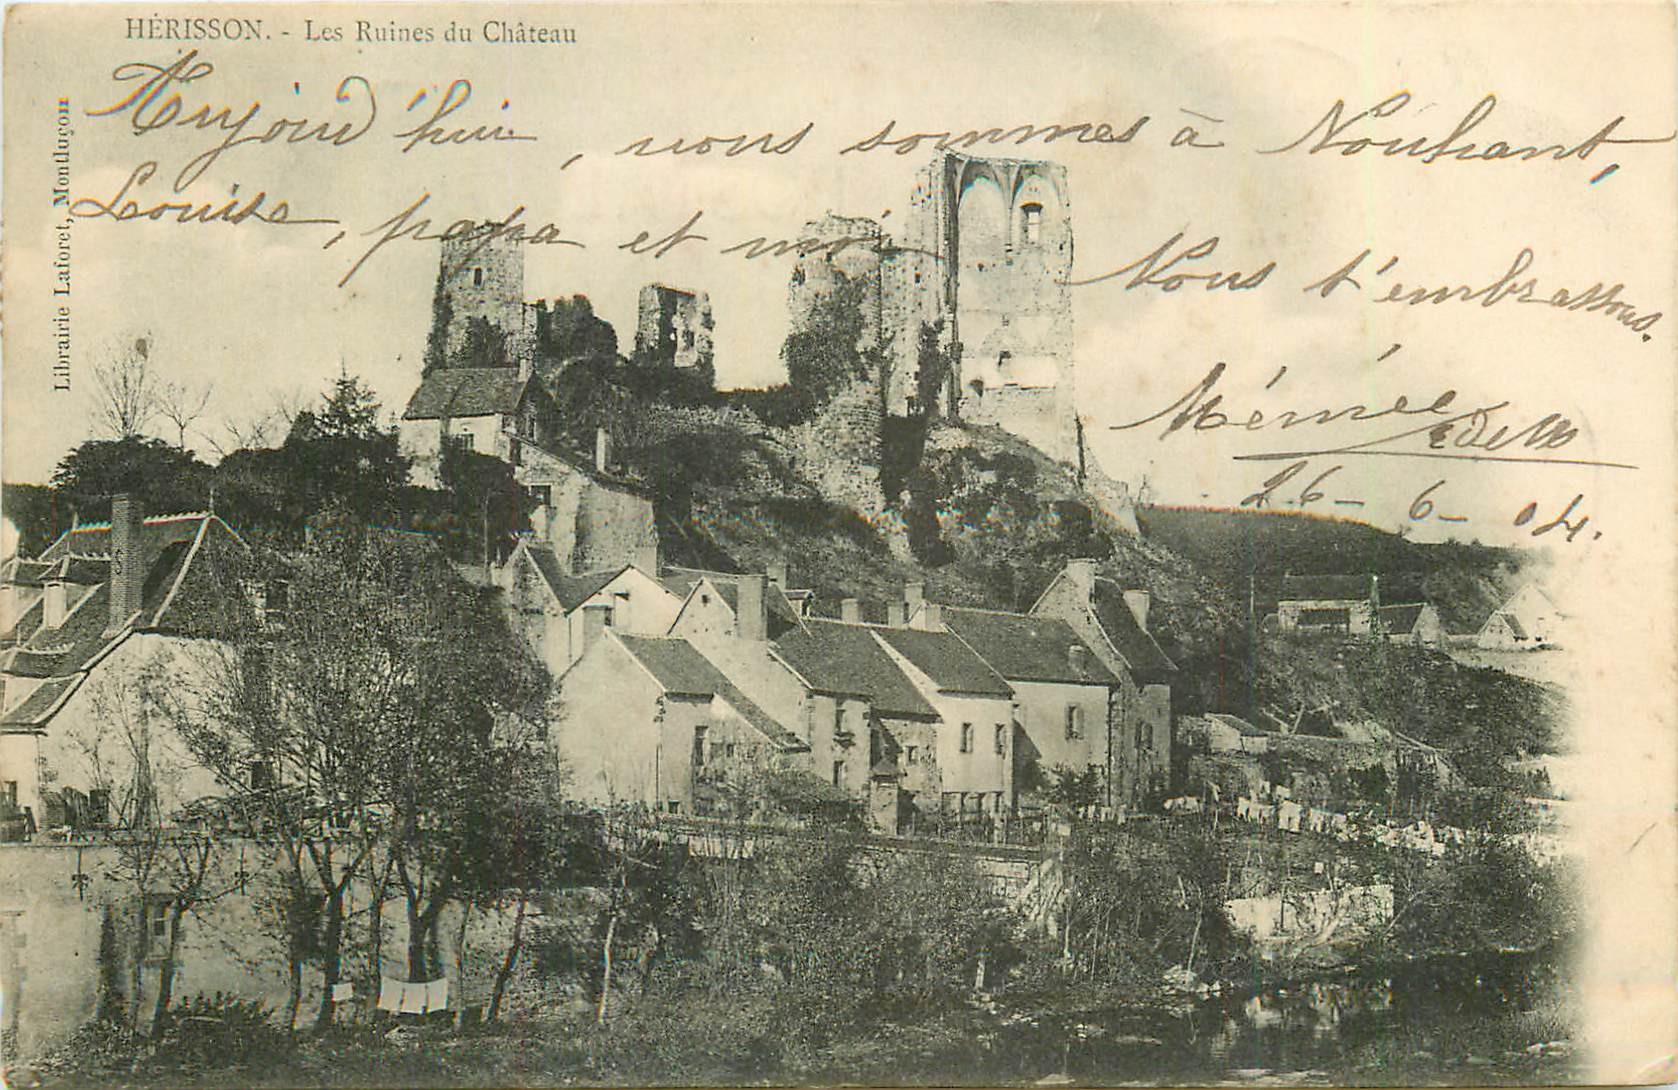 HÉRISSON. - Les Ruines du Château
Librairie Laforet, Montluçon
Aujourd'hui, nous sommes à Nouhant,
Louise, papa et moi
Nous t'embrassons.
Mémée
26-6-04.